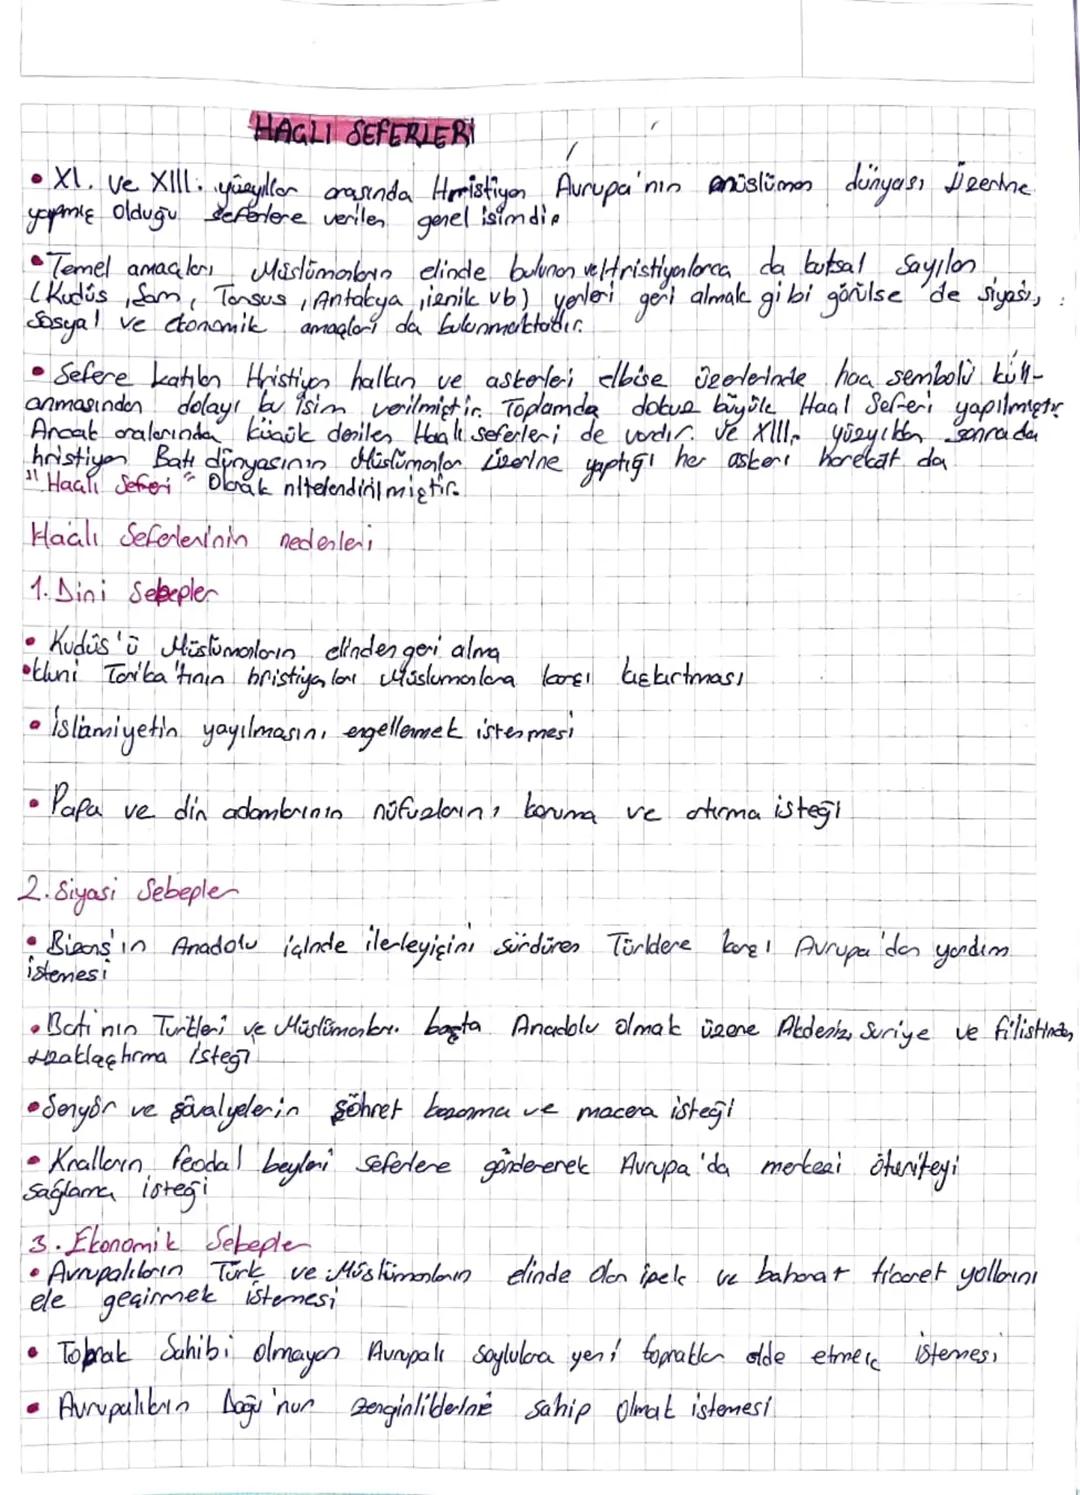 HAÇLI SEFERLERİ
• XI. ve XIII. yüzyıllar arasında Hristiyan Avrupa'nın müslüman dünyası üzerine
yapmış olduğu seferlere verilen genel isimdir
• Temel amaçları Müslümanların elinde bulunan ve Hristiyanlarca da kutsal sayılan
(Kudüs, Şam, Tarsus, Antakya, iznik vb) yerleri geri almak gibi görülse de siyasi,
sosyal ve ekonomik amaçları da bulunmaktadır.
• Sefere katılan Hristiyan halkın ve askerleri elbise üzerlerinde haç sembolü kull-
anmasından dolayı bu isim verilmiştir. Toplamda dokuz büyük Haçlı Seferi yapılmıştır
Ancak aralarında küçük denilen Haçlı seferleri de vardır. Ve XIII. yüzyıldan sonra da
hristiyan Batı dünyasının Müslümanlar üzerine yaptığı her askeri harekât da
"Haçlı Seferi" Olarak nitelendirilmiştir.
Haçlı Seferlerinin nedenleri
1. Dini Sebepler
• Kudüs'ü Müslümanların elinden geri alma
• Kluni Tarika'tının hristiyanları Müslümanlara karşı kışkırtması
• İslamiyetin yayılmasını engellemek istenmesi
• Papa ve din adamlarının nüfuzlarını koruma ve artırma isteği
2. Siyasi Sebepler
• Bizans'ın Anadolu içinde ilerleyişini sürdüren Türklere karşı Avrupa'dan yardım
istemesi
• Batı'nın Türkleri ve Müslümanları başta Anadolu olmak üzere Akdeniz, Suriye ve filistinden
uzaklaştırma isteği
• Senyör ve şövalyelerin şöhret kazanma ve macera isteği
• Kralların feodal beyleri seferlere göndererek Avrupa'da merkezi otoriteyi
sağlama isteği
3. Ekonomik Sebepler
• Avrupalıların Türk ve Müslümanların elinde olan ipek ve baharat ticaret yollarını
ele geçirmek istemesi
• Toprak Sahibi olmayan Avrupalı soylulara yeni topraklar elde etmek istemesi
• Avrupalıların Doğu'nun zenginliklerine sahip olmak istemesi